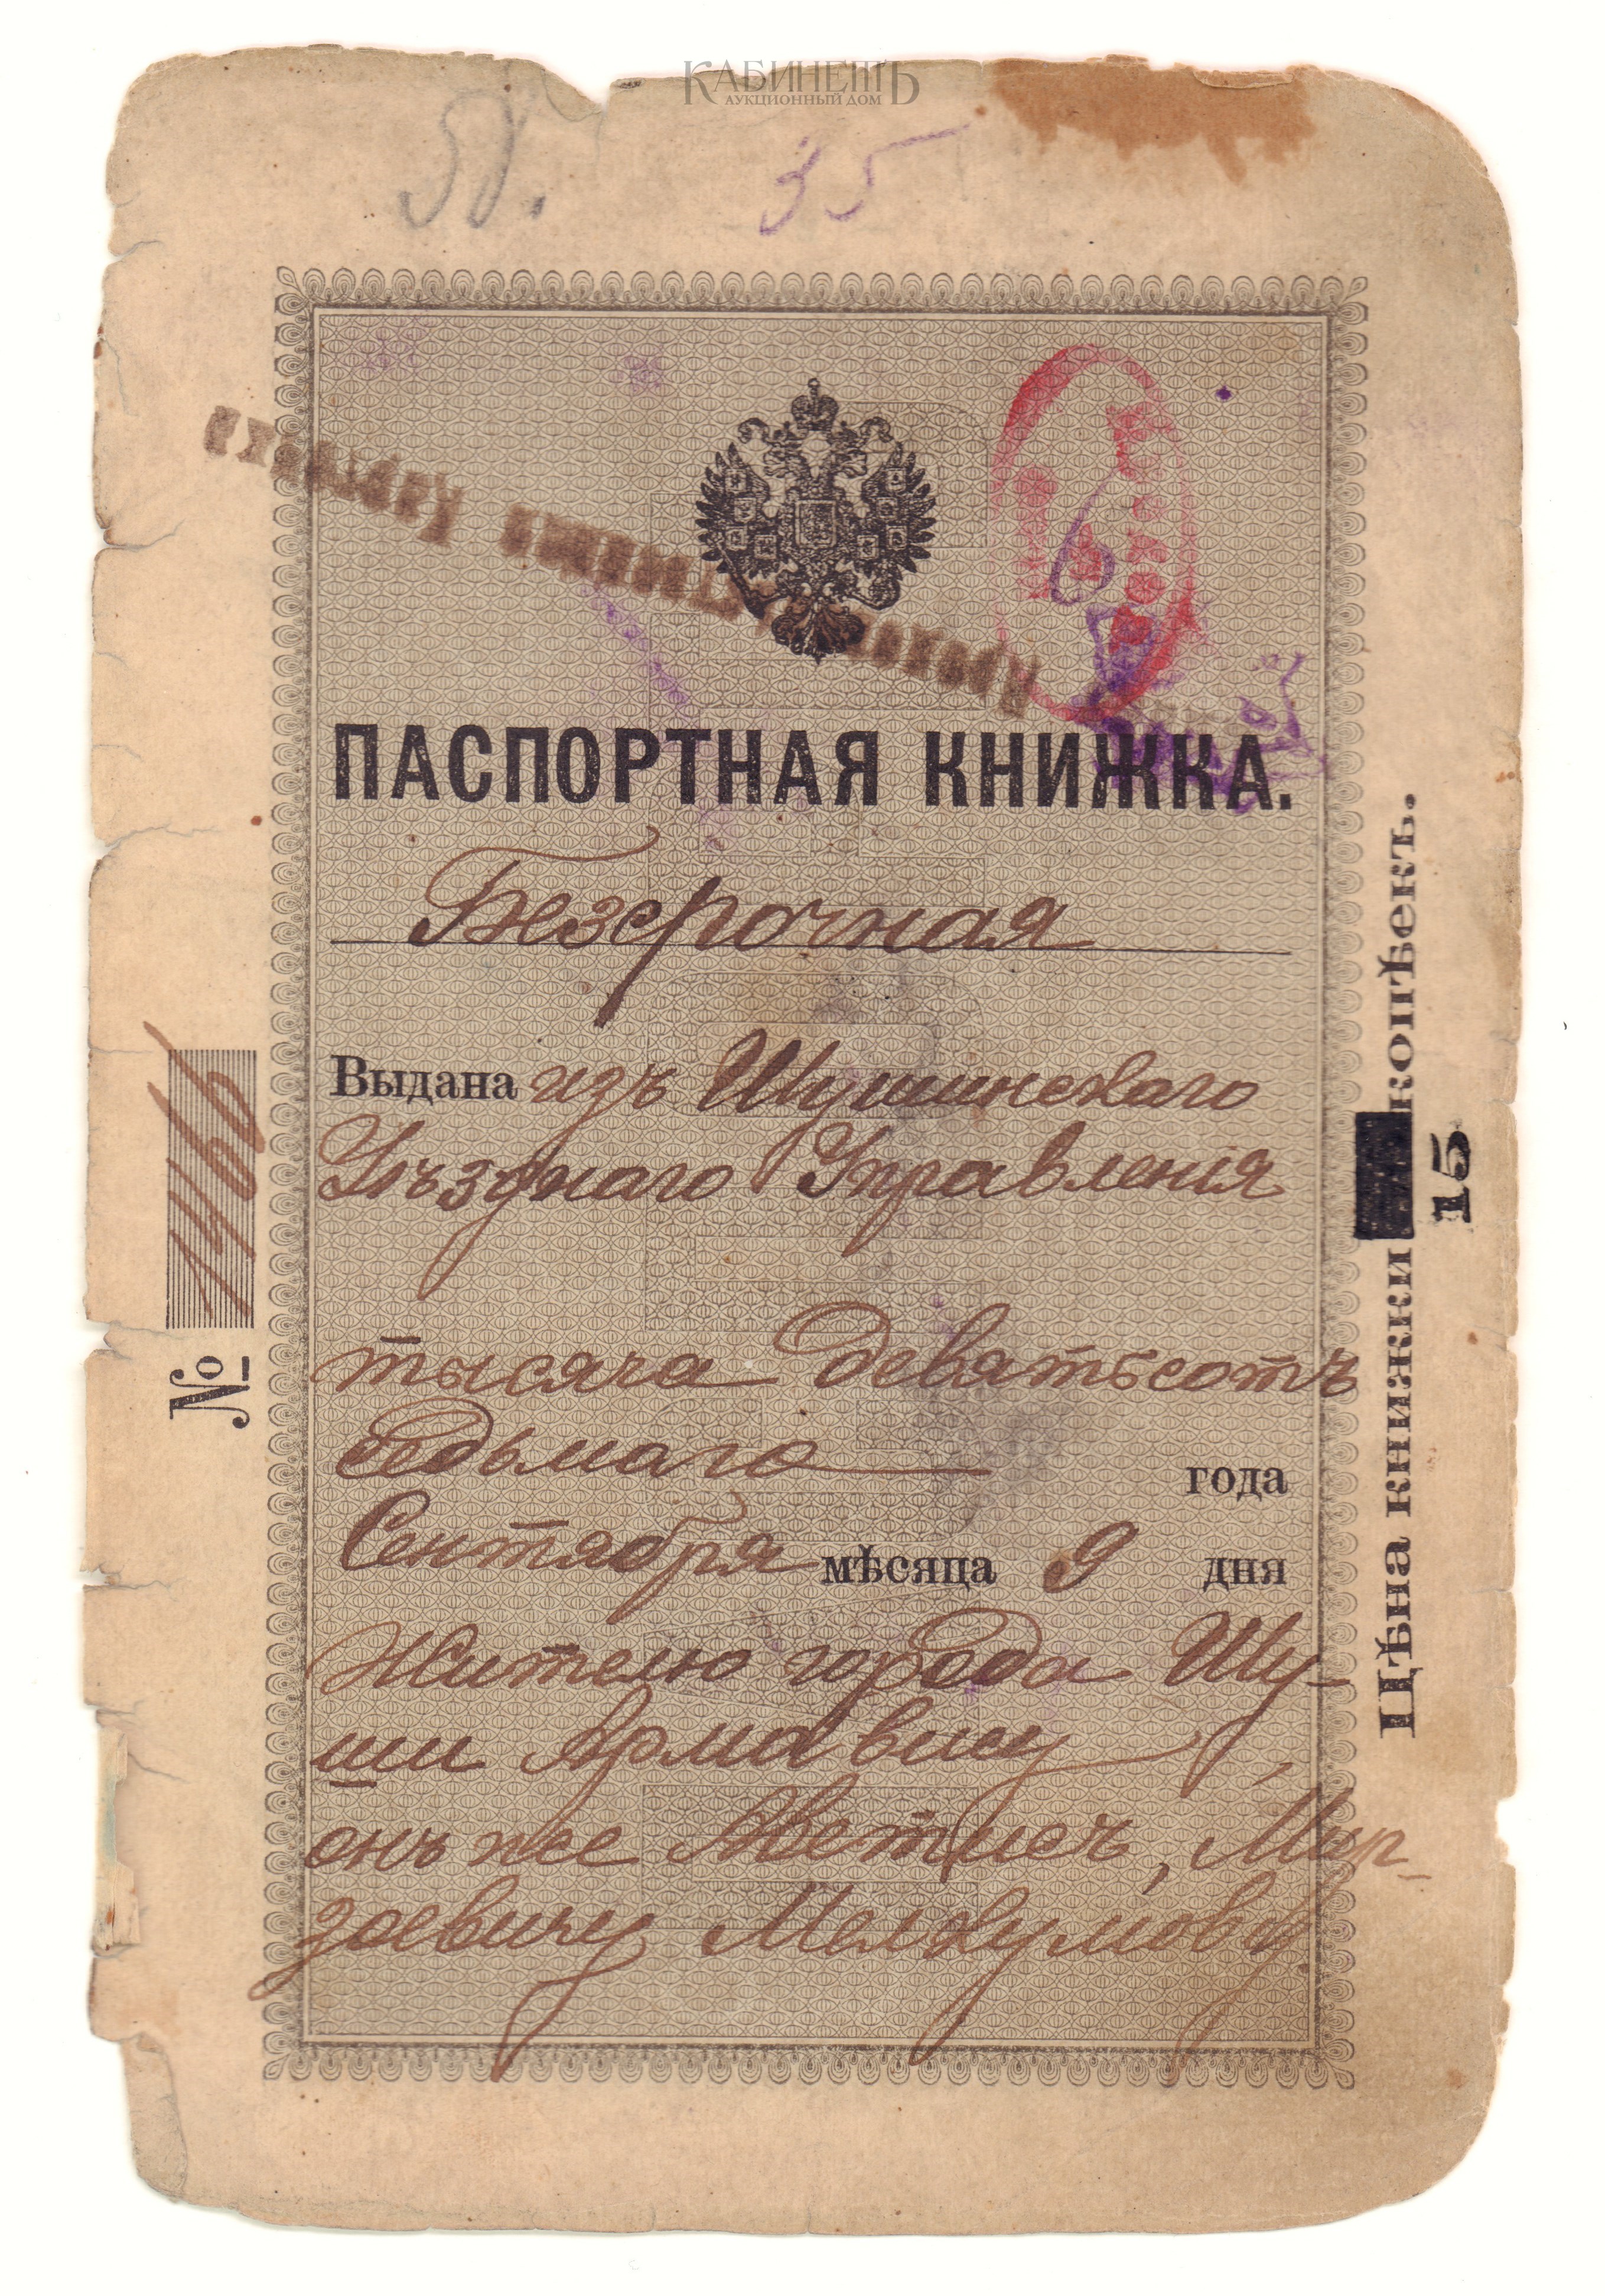 КАБИНЕТЪ
АУКЦИОННЫЙ ДОМ
58.
35
ПАСПОРТНАЯ КНИЖКА.
Безсрочная
Выдана изъ Шушинскаго
Уѣзднаго Управленія
тысяча девятьсотъ
седьмаго года
Сентября мѣсяца 9 дня
Жителю города Шу-
ши Армавису
онъ же Аветисъ, Мир-
заевичу Мелкумову
№ 1466
Цѣна книжки копѣекъ.
15